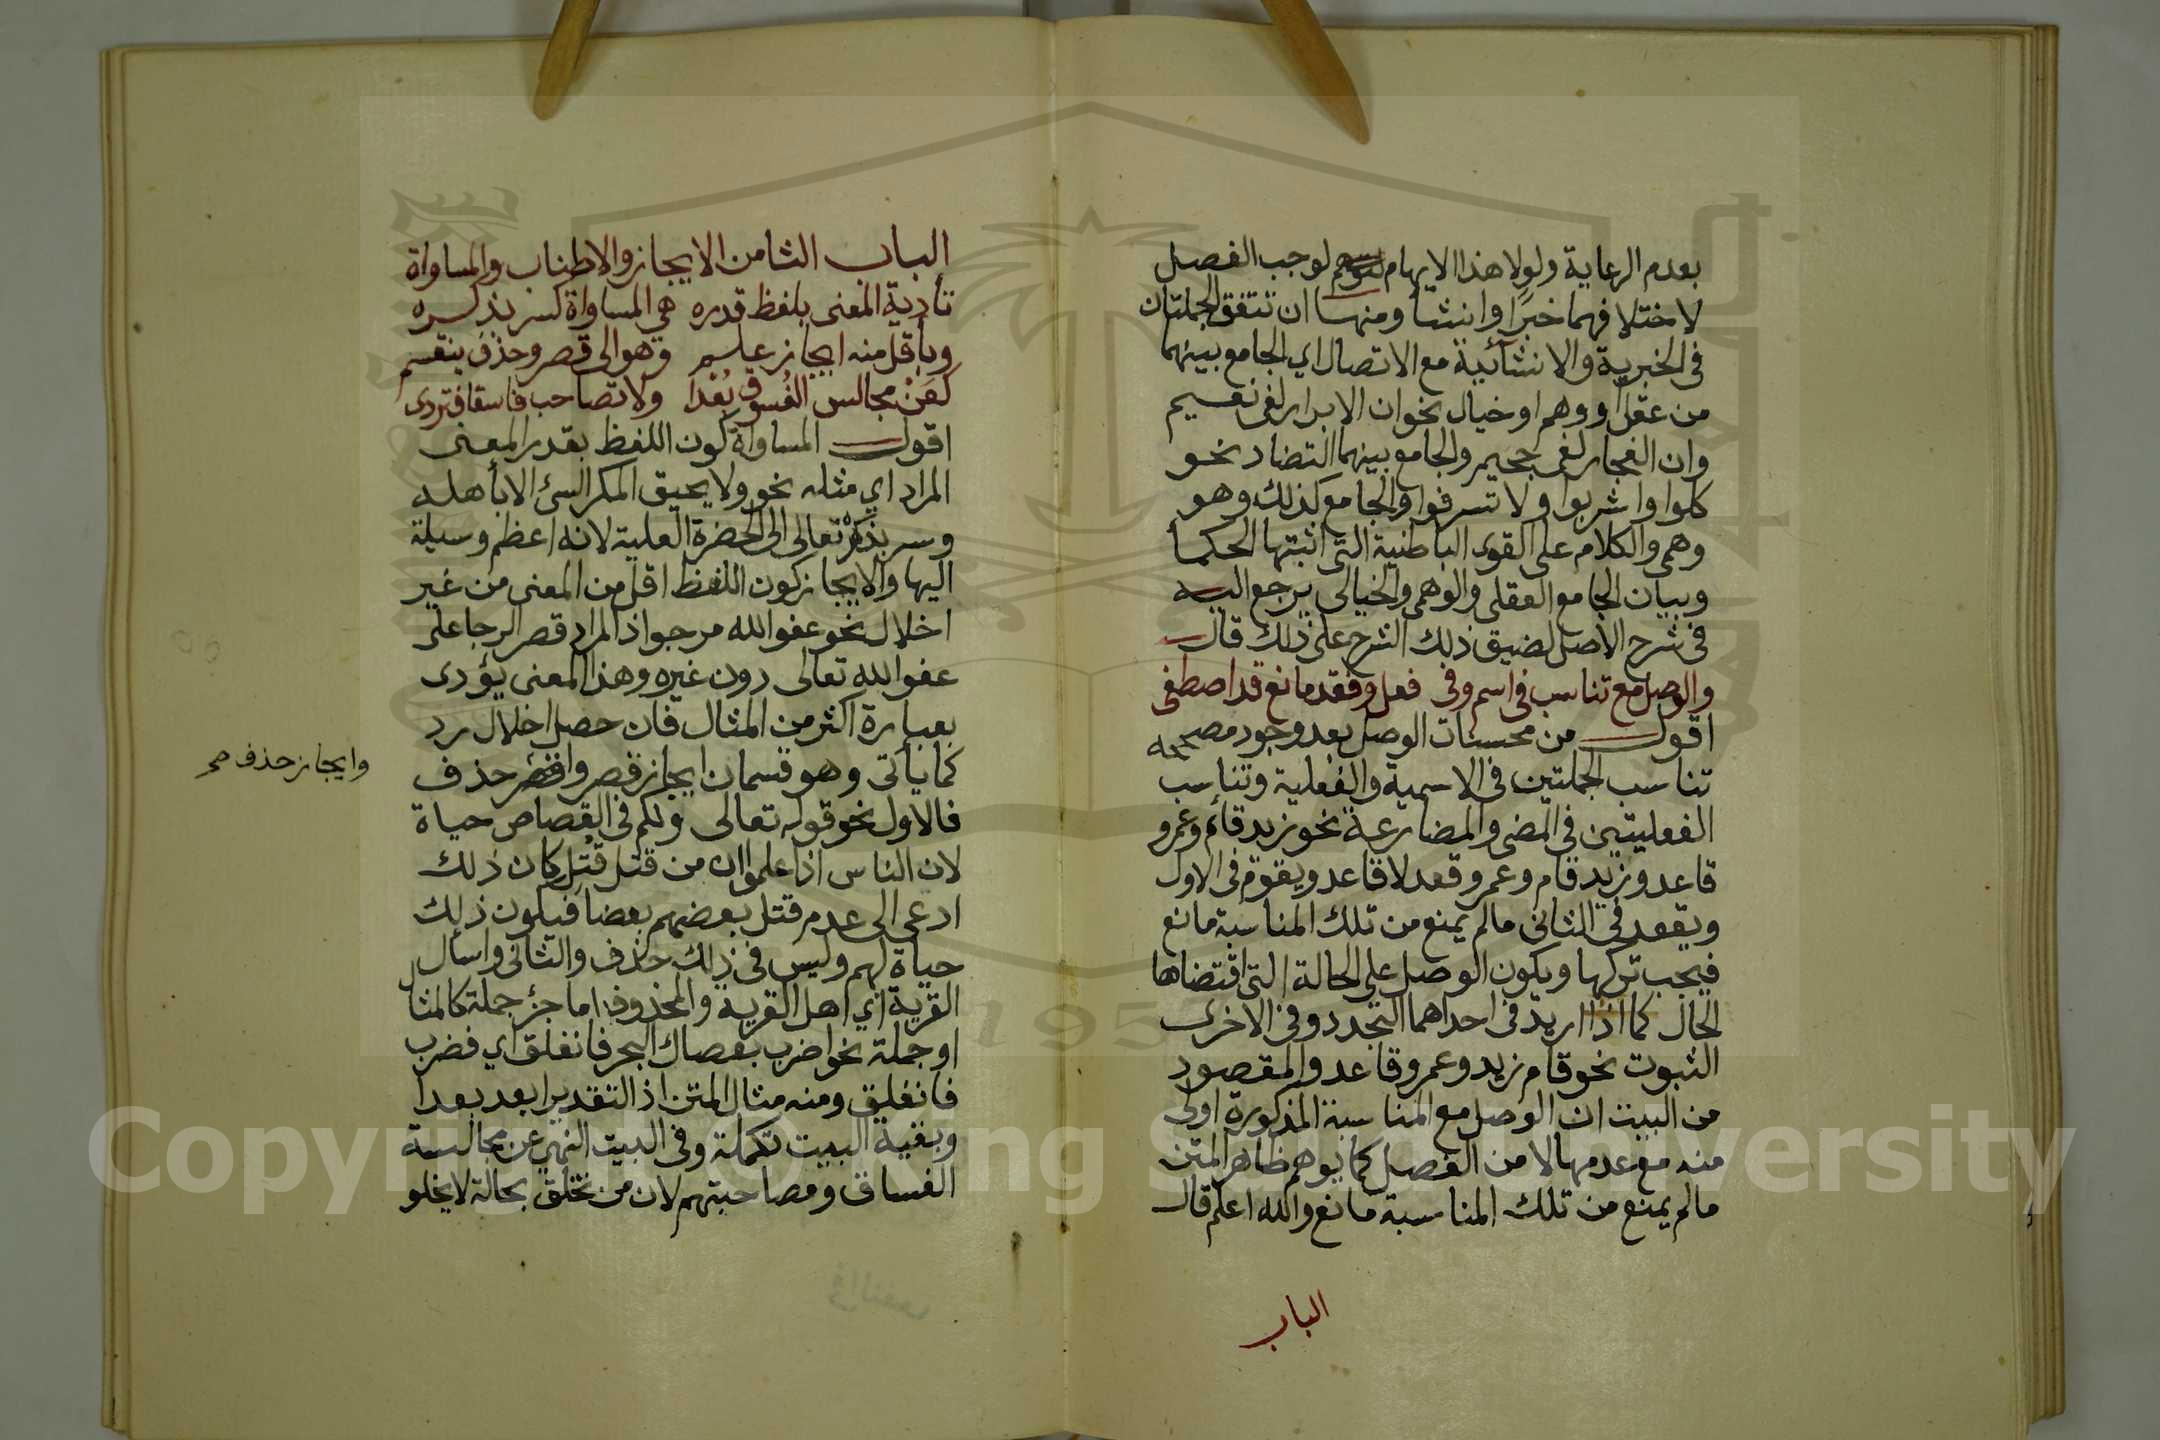 بعدم الرعاية ولولا هذا الايهام لوجب الفصل
لاختلافهما خبرًا وانشا ومنها ان تتفق الجملتان
فى الخبرية والانشآئية مع الاتصال اي الجامع بينهما
من عقل او وهم او خيال نحو ان الابرار لفى نعيم
وان الفجار لفى جحيم والجامع بينهما التضاد نحو
كلوا واشربوا ولا تسرفوا والجامع كذلك وهو
وهمى والكلام على القوى الباطنية التى اثبتها الحكمأ
وببيان الجامع العقلى والوهمى والخيالى يرجع اليه
فى شرح الاصل لضيق ذلك الشرح على ذلك قال
والوصل مع تناسب فى اسم وفى فعل وفقد مانع قد اصطفى
اقول من محسنات الوصل بعد وجود مصححه
تناسب الجملتين فى الاسمية والفعلية وتناسب
الفعليتين فى المضى والمضارعة نحو زيد قائم وعمرو
قاعد وزيد قام وعمرو قعد لا قاعد ويقوم فى الاول
ويقعد فى الثانى ما لم يمنع من تلك المناسبة مانع
فيجب تركها ويكون الوصل على الحالة التى اقتضاها
الحال كما اذا اريد فى احداهما التجدد وفى الاخرى
الثبوت نحو قام زيد وعمرو قاعد والمقصود
من البيت ان الوصل مع المناسبة المذكورة اولى
منه مع عدمها لا من الفصل كما يوهم ظاهر المتن
ما لم يمنع من تلك المناسبة مانع والله اعلم قال
الباب
الباب الثامن الايجاز والاطناب والمساواة
تأدية المعنى بلفظ قدره هي المساواة كسر بذكره
وبأقل منه ايجاز علم وهو الى قصر وحذف ينقسم
كعَنْ مجالس الفُسوق بُعْدا ولا تصاحب فاسقا فتردى
اقول المساواة كون اللفظ بقدر المعنى
المراد اي مثله نحو ولا يحيق المكر السئ الا بأهله
وسر بذكره تعالى الى الحضرة العلية لانه اعظم وسيلة
اليها والايجاز كون اللفظ اقل من المعنى من غير
اخلال نحو عفو الله مرجو اذ المراد قصر الرجا على
عفو الله تعالى دون غيره وهذا المعنى يؤدى
بعبارة اكثر من المثال فان حصل اخلال رد
كما يأتى وهو قسمان ايجاز قصر حذف
وايجاز حذف صح
فالاول نحو قوله تعالى ولكم فى القصاص حياة
لان الناس اذا علموا ان من قتل قُتِل كان ذلك
ادعى الى عدم قتل بعضهم بعضا فيكون ذلك
حياة لهم وليس فى ذلك حذف والثانى واسأل
القرية اي اهل القرية والمحذوف اما جزء جملة كالمثال
او جملة نحو اضرب بعصاك البحر فانفلق اي فضرب
فانفلق ومنه مثال المتن اذ التقدير ابعد بعدا
وبقية البيت تكملة وفى البيت النهى عن مجالسة
الفساق ومصاحبتهم لان من تخلق بحالة لا يخلو
1957
Copyright © King Saud University